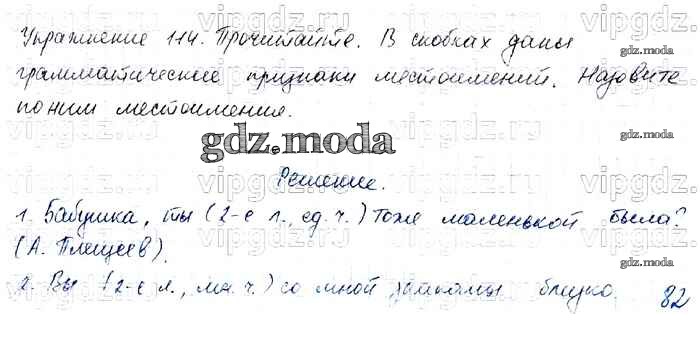 Упражнение 114. Прочитайте. В скобках даны
грамматические признаки местоимений. Назовите
по ним местоимения.
gdz.moda
Решение.
1. Бабушка, ты (2-е л., ед. ч.) тоже маленькой была?
(А. Плещеев).
2. Вы (2-е л., мн. ч.) со мной знакомы близко.
82